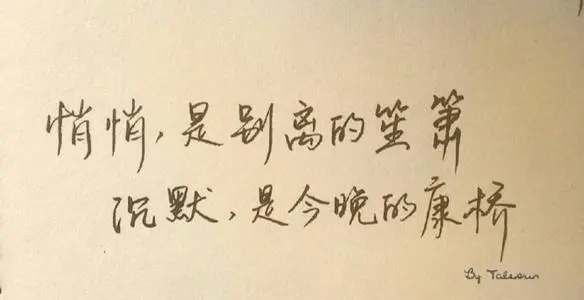 悄悄，是别离的笙箫
沉默，是今晚的康桥
By